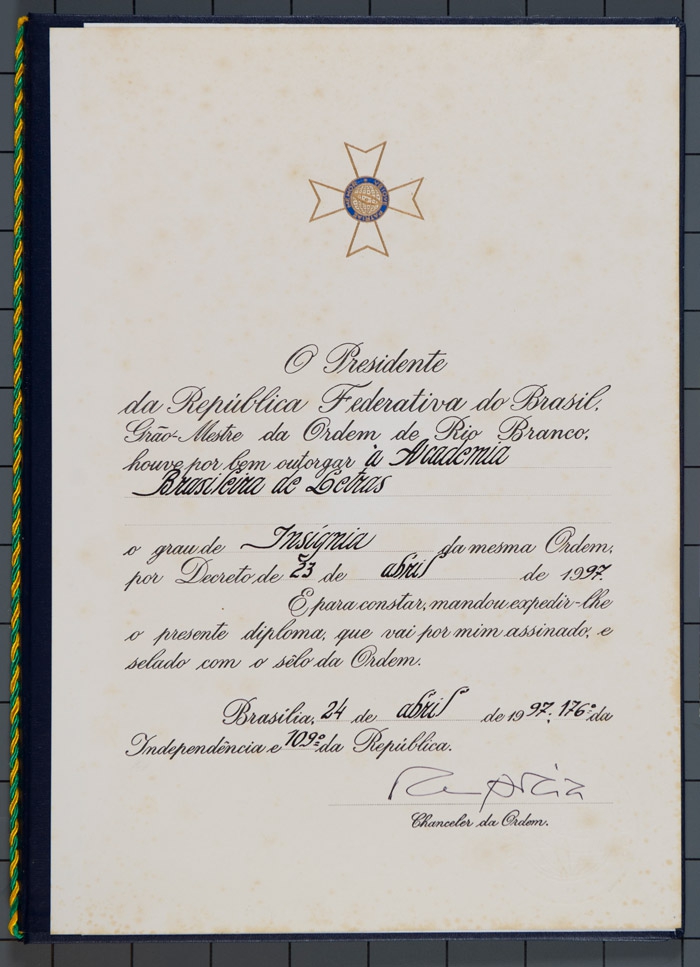 O Presidente
da República Federativa do Brasil,
Grão-Mestre da Ordem de Rio Branco,
houve por bem outorgar à Academia
Brasileira de Letras
o grau de Insígnia da mesma Ordem,
por Decreto de 23 de abril de 1997.
E para constar, mandou expedir-lhe
o presente diploma, que vai por mim assinado, e
selado com o sêlo da Ordem.
Brasília, 24 de abril de 1997, 176º da
Independência e 109º da República.
Chanceler da Ordem.